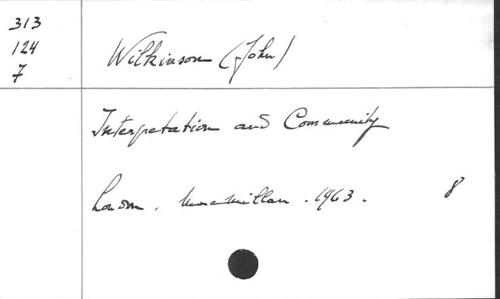 313
124
7
Wilkinson (John)
Interpretation and Community
London. Macmillan. 1963. 8